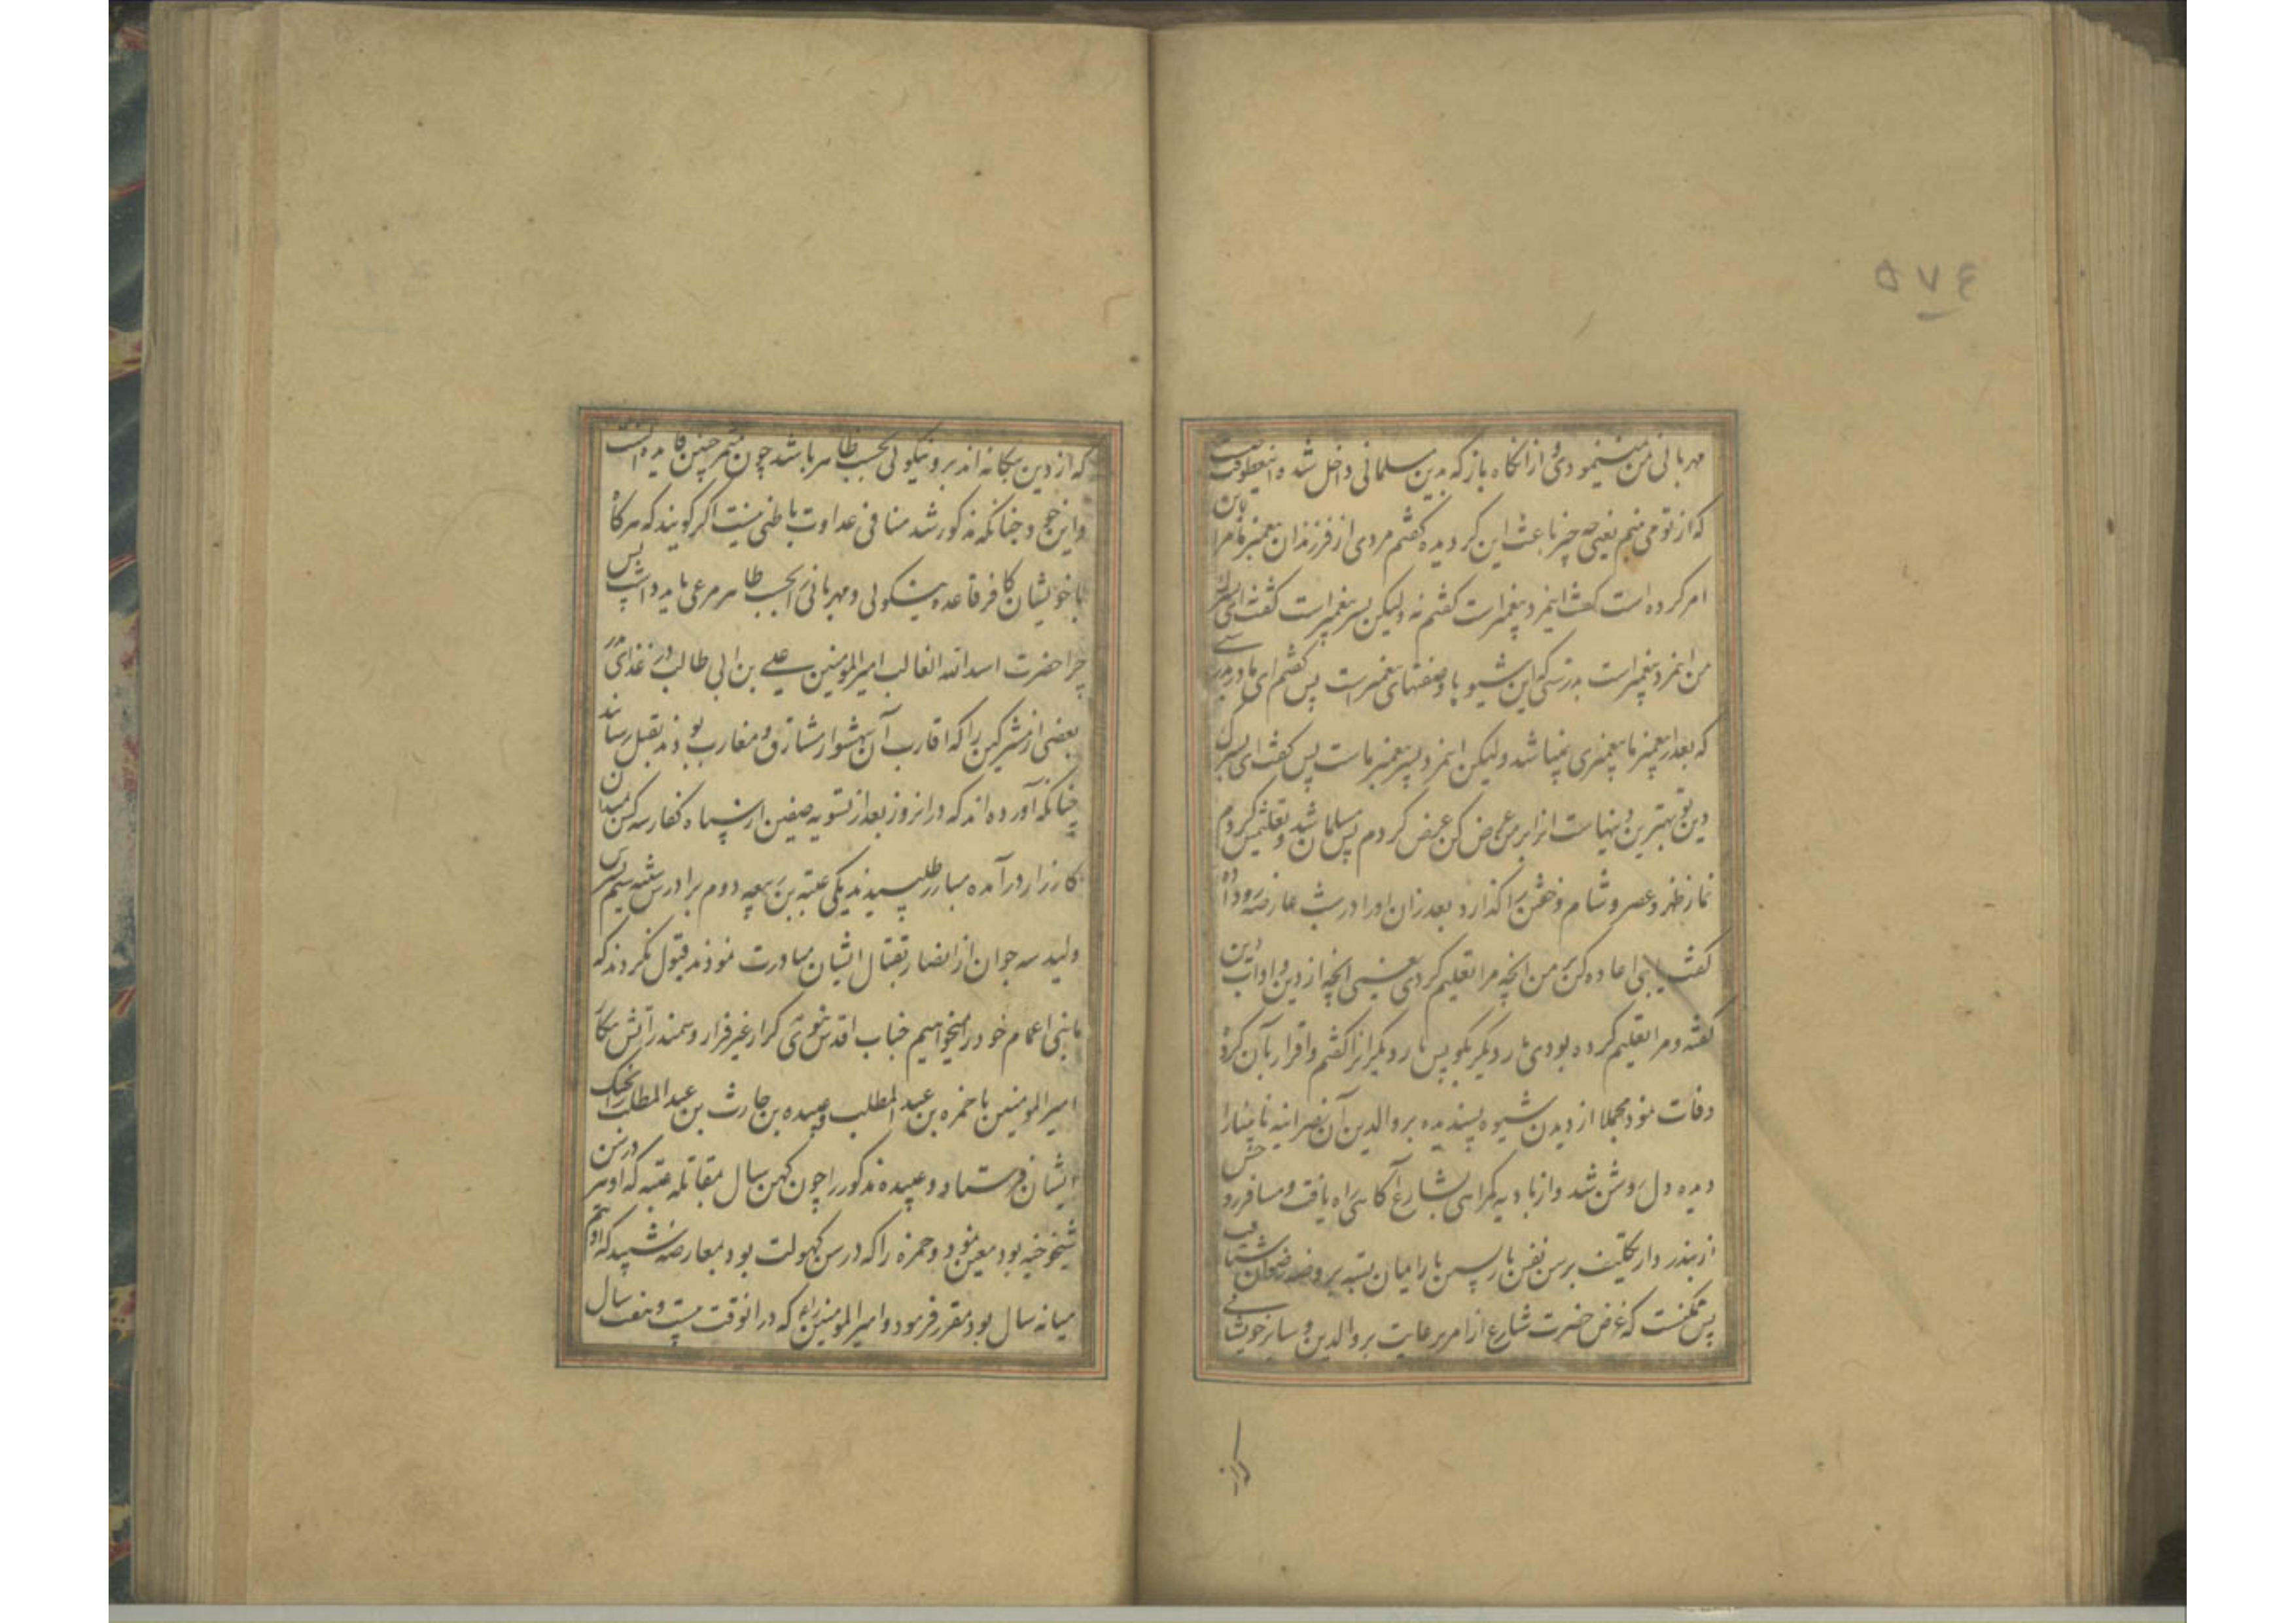 ۵۷۴
مهربانی بمن نمینمودی و از آنگاه باز که بدین مسلمانی داخل شده این عطوفت
که از تو می بینم یعنی چه چیز باعث این گردیده گفتم مردی از فرزندان پیغمبر ما مرا باین
امر کرده است گفت اینمرد پیغمبر است گفتم نه ولیکن پسر پیغمبر است گفت ای پسرک
من اینمرد پیغمبر است بدرستی که این شیوها وصفتهای پیغمبرانست پس گفتم ای مادر بدرستی
که بعد از پیغمبر ما پیغمبری نمیباشد ولیکن اینمرد پسر پیغمبر ماست پس گفت ای پسرک
دین تو بهترین دینهاست انرا بر من عرض کن عرض کردم پس مسلمان شد و تعلیمش کردم
نماز ظهر و عصر و شام و خفتن را گذارد بعد از آن او را در شب عارضه رو داد
گفت یابنی اعاده کن بر من آنچه مرا تعلیم کردی یعنی آنچه از دین و اداب دین
گفته و مرا تعلیم کرده بودی بار دیگر بگو پس بار دیگر انرا گفتم و اقرار بآن کرد
وفات نمود مجملا از دیدن شیوه پسندیده بر والدین آن نصرانیه نابینا را
دیده دل روشن شد و از بادیه گمراهی بشارع آگاهی راه یافت و مسافر روحش
از بندر دار تکلیف برسن نفس بازپسین بار را میان بسته بروضه رضوان شتافت
پس ممکنست که غرض حضرت شارع از امر برعایت بر والدین و سایر خویشانی
که از
که از دین بیگانه اند بر و نیکوئی بحسب ظاهر باشد چون مثمر چنین فایده است
و این خود چنانکه مذکور شد منافی عداوت باطنی نیست اگر گویند که هرگاه
با خویشان کافر قاعده نیکوئی و مهربانی بحسب ظاهر مرعی باید داشت پس
چرا حضرت اسدالله الغالب امیرالمومنین علی بن ابی طالب در غزای بدر
بعضی از مشرکین را که اقارب آن پیشوای مشارق و مغارب بودند بقتل رسانید
چنانکه آورده اند که در انروز بعد از تسویه صفین از سپاه کفار سه کس بمیدان
کارزار در آمده مبارز طلبیدند یکی عتبه بن ربیعه دوم برادرش شیبه سیم پسرش
ولید سه جوان از انصار بقتال ایشان مبادرت نمودند قبول نکردند که
ما بنی اعمام خود را میخواهیم جناب اقدس نبوی کرار غیر فرار و سمندر آتش پیکار
امیرالمومنین با حمزه بن عبدالمطلب و عبیده بن حارث بن عبدالمطلب را بجنگ
ایشان فرستاد و عبیده مذکور را چون کهن سال بمقاتله عتبه که او نیز در سن
شیخوخیه بود معین نمود و حمزه را که در سن کهولت بود بمعارضه شیبه که او هم
میانه سال بود مقرر فرمود و امیرالمومنین را که در انوقت بیست و هفت سال